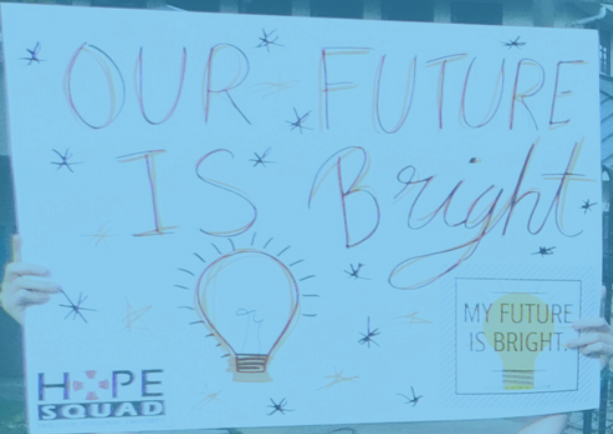 OUR FUTURE
IS Bright
MY FUTURE
IS BRIGHT.
HOPE
SQUAD